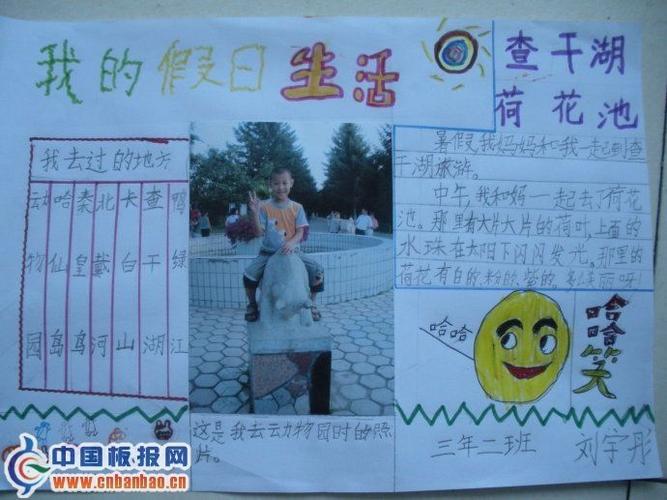 我的假日生活
查干湖
荷花池
我去过的地方
动物园
哈仙岛
秦皇岛
北戴河
长白山
查干湖
鸭绿江
暑假,我妈妈和我一起到查
干湖旅游。
中午,我和妈一起去了荷花
池。那里有大片大片的荷叶,上面的
水珠在太阳下闪闪发光,那里的
荷花有白的,粉的,紫的,多么美丽呀!
哈哈
哈哈笑
这是我去动物园时的照
片。
三年二班 刘宇彤
中国板报网
www.cnbanbao.cn